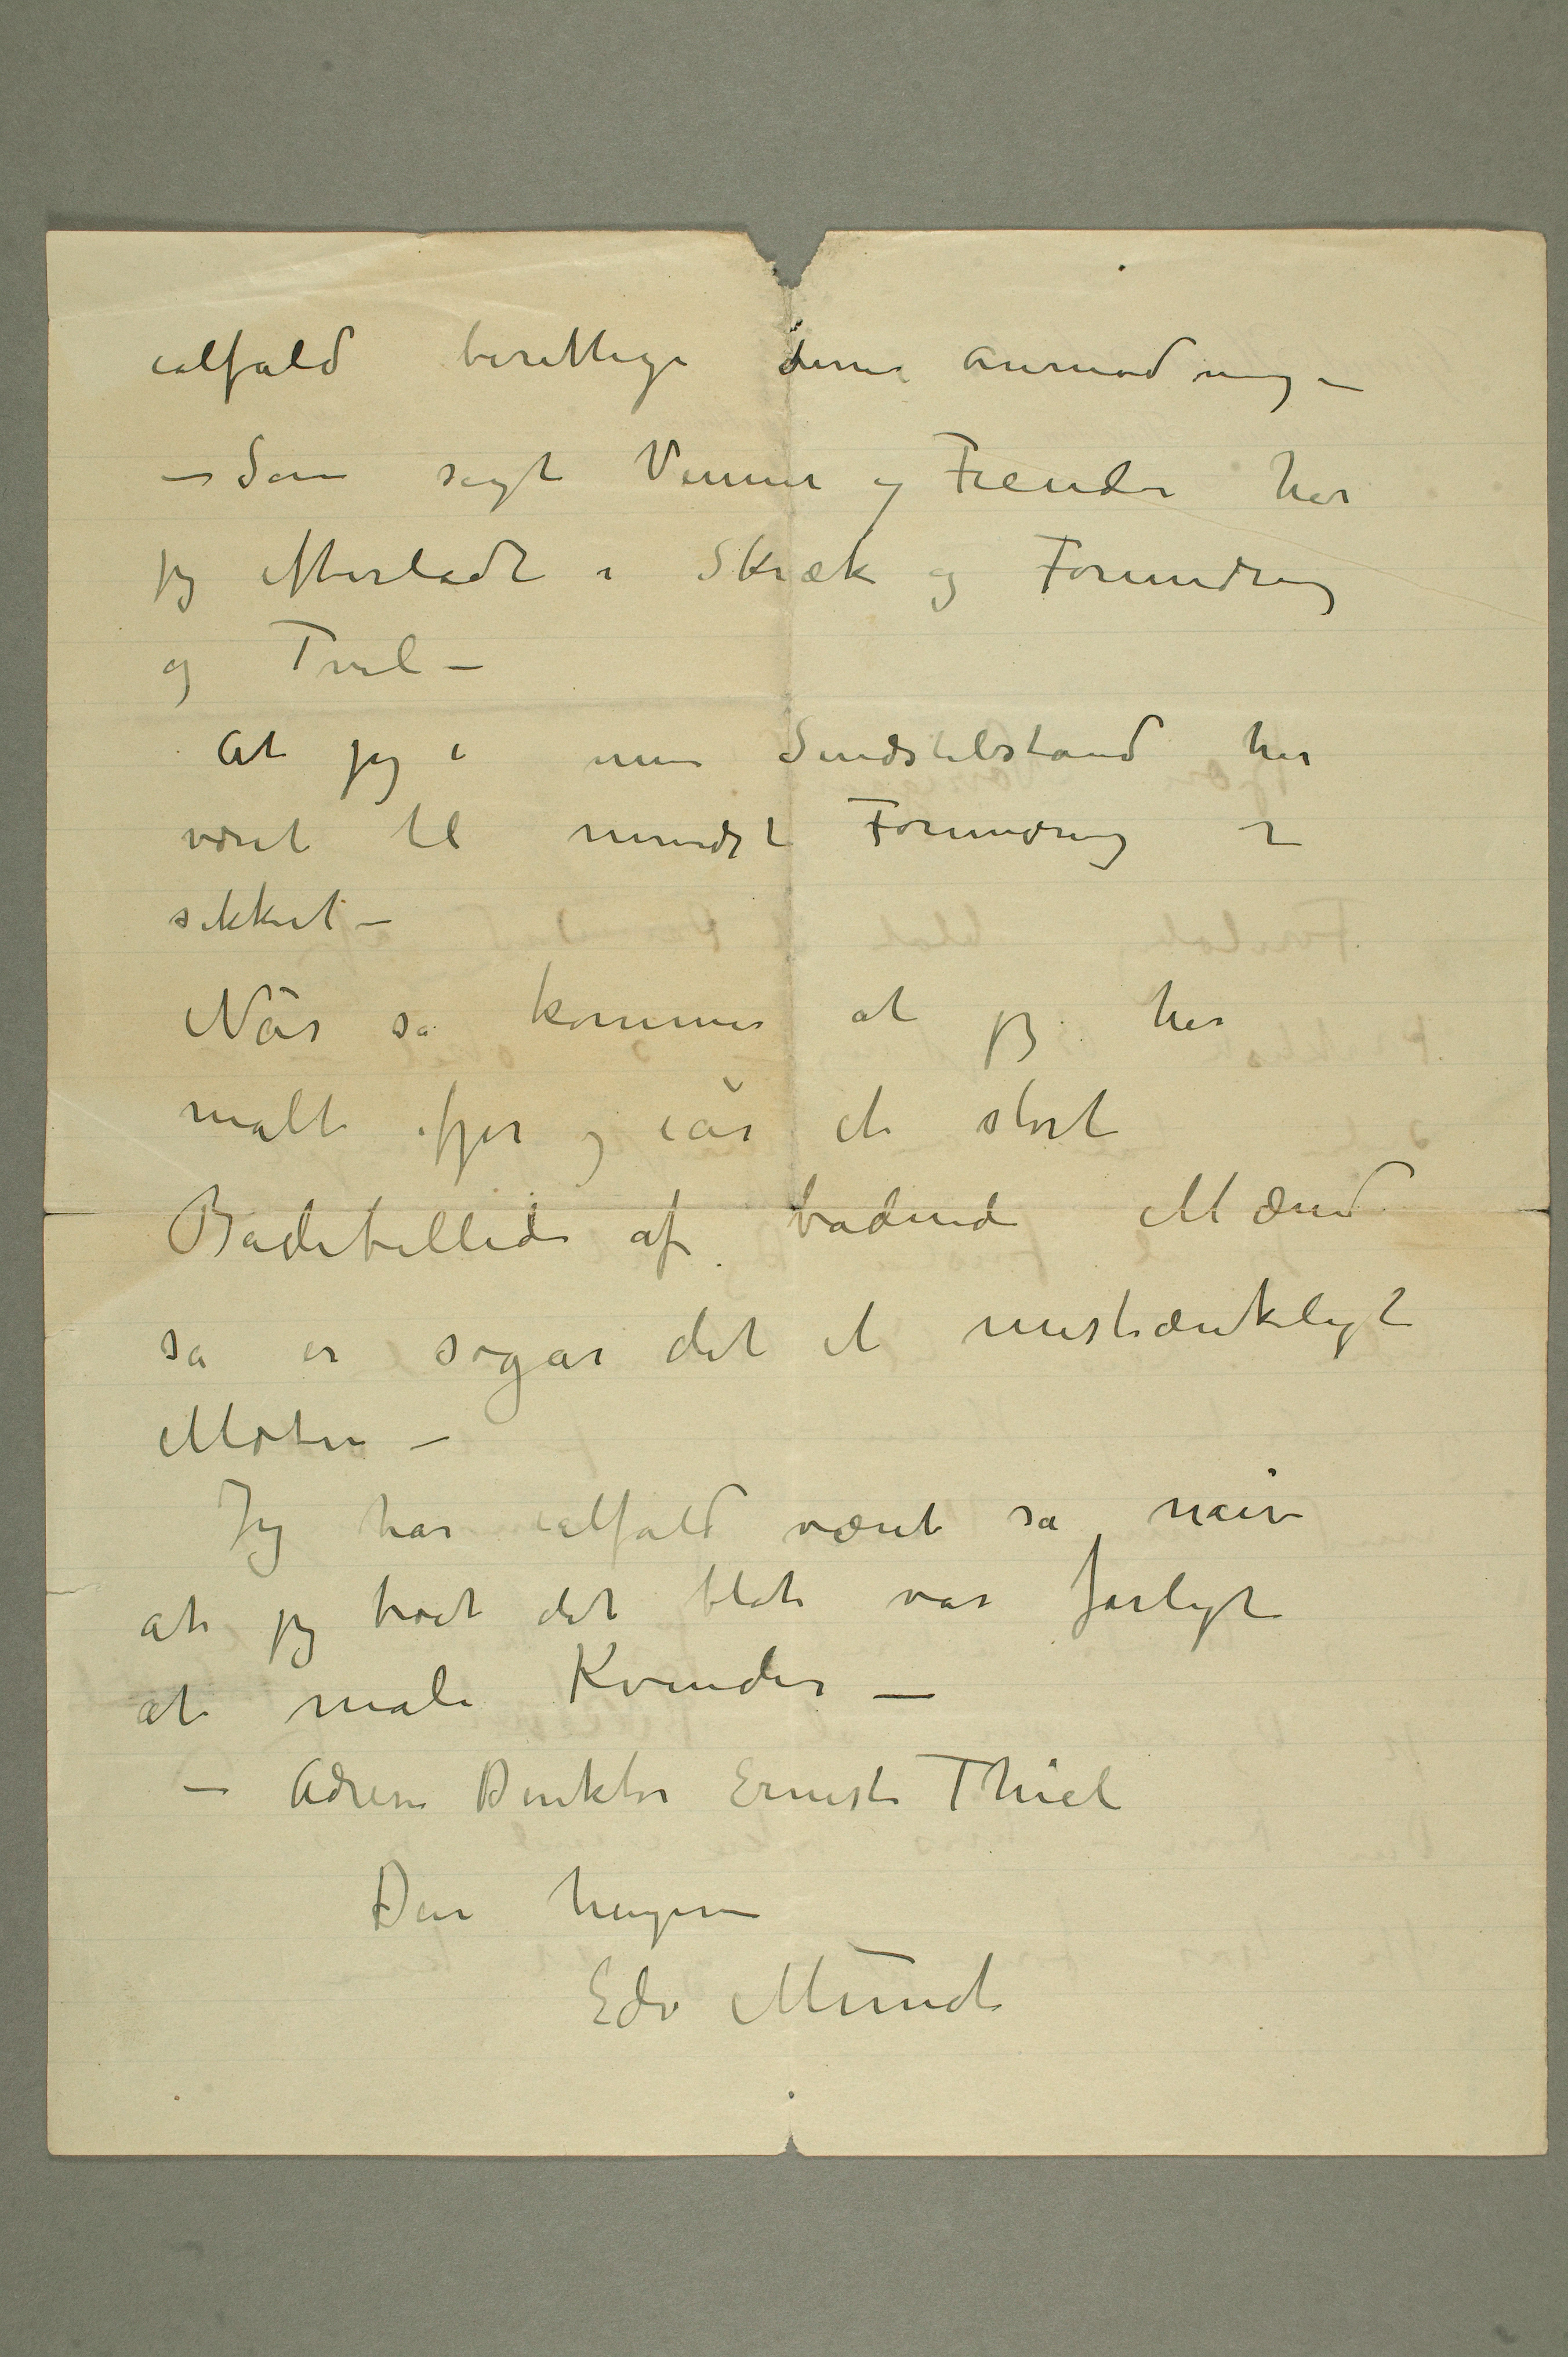 ialfald berettige denne Anmodning –
– Som sagt Venner og Fiender har
jeg efterladt i Skræk og Forundring
og Tvil –
At jeg i min Sindstilstand har
været til mindst Forundring er
sikkert –
Når så kommer at jeg har
malt ifjor og iår et stort
Badebillede af badende Mænd
så er sogar det et mistænkeligt
Motiv –
Jeg har ialfald været så naiv
at jeg trodt det blot var farligt
at male Kvinder –
– Adresse Direktør Ernest Thiel
Din hengivne
Edv Munch